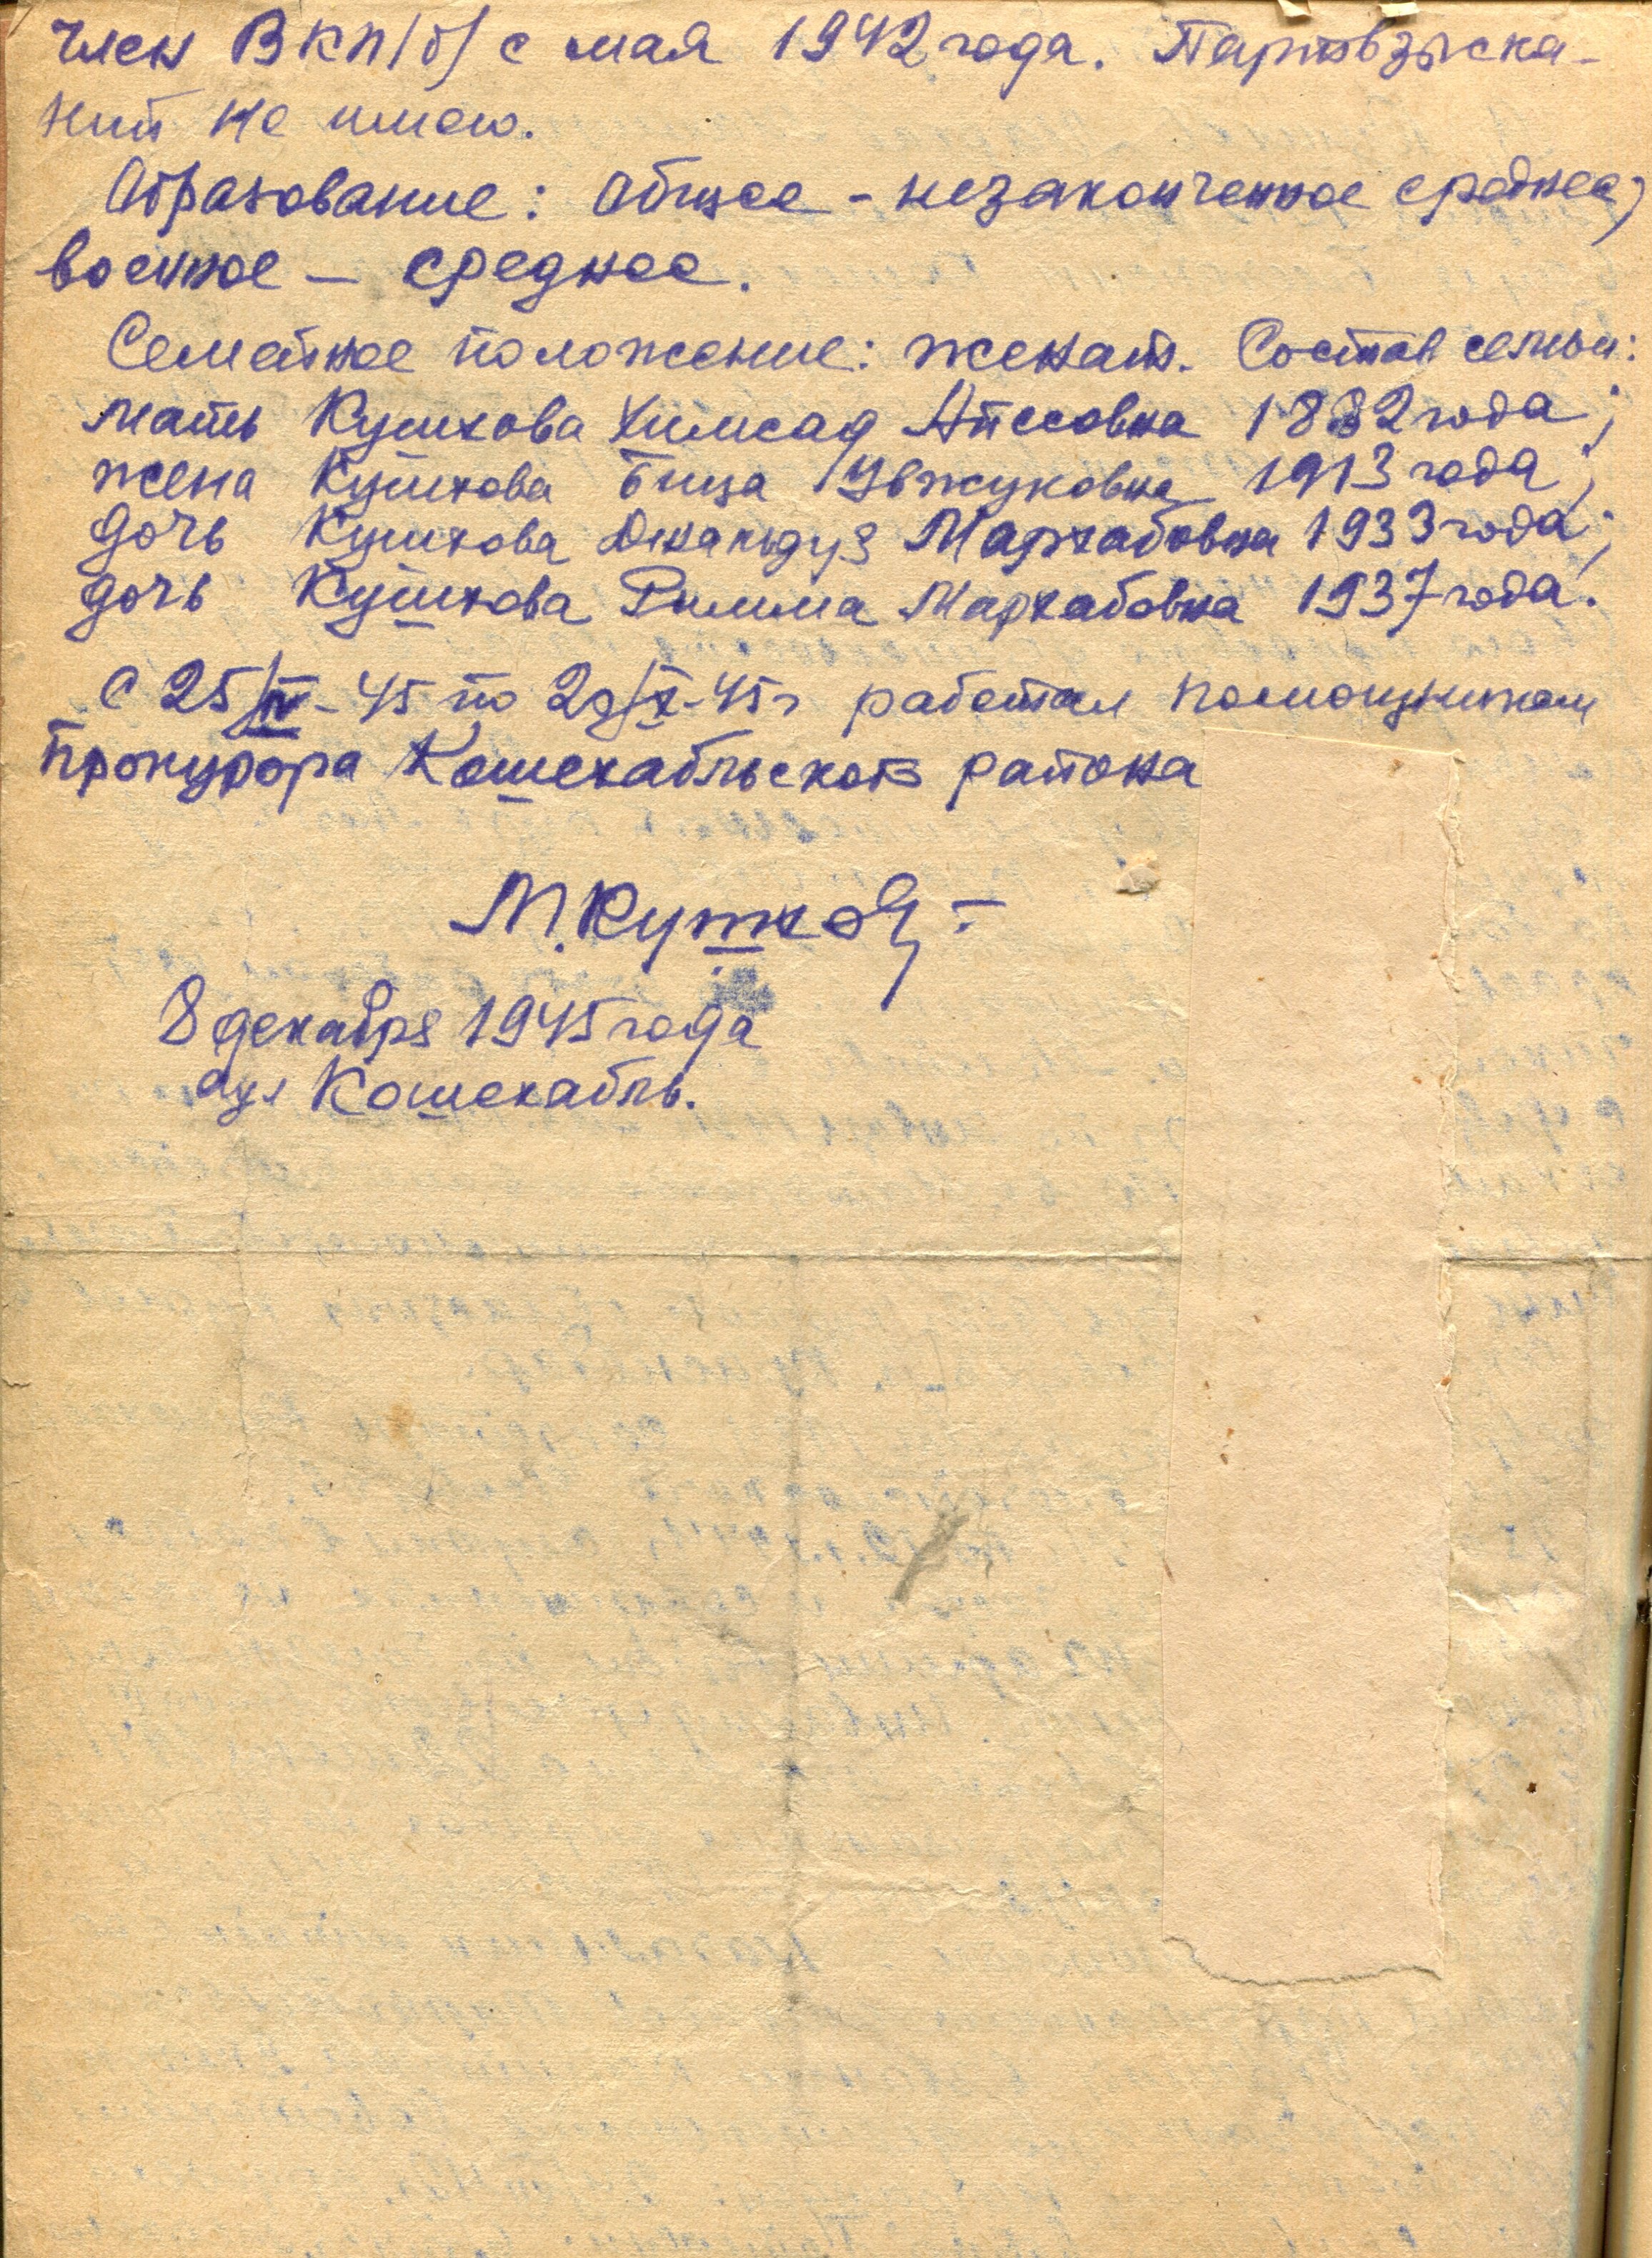 член ВКП/б/ с мая 1942 года. Партвзыска-
ний не имею.
Образование: общее - незаконченное среднее,
военное – среднее.
Семейное положение: женат. Состав семьи:
мать Кушхова Химсад 1882 года;
жена Кушхова Бица Увжуковна 1913 года;
дочь Кушхова Джанидуз Мархабовна 1933 года;
дочь Кушхова Римма Мархабовна 1937 года.
С 25/IV-45 по 29/X-45 г работал помощником
прокурора Кошехабльского района
М. Кушхов -
8 декабря 1945 года
аул Кошехабль.